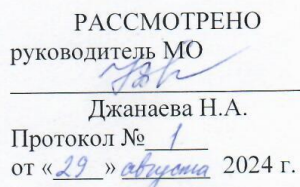 РАССМОТРЕНО
руководитель МО
Джанаева Н.А.
Протокол № 1
от «29» августа 2024 г.